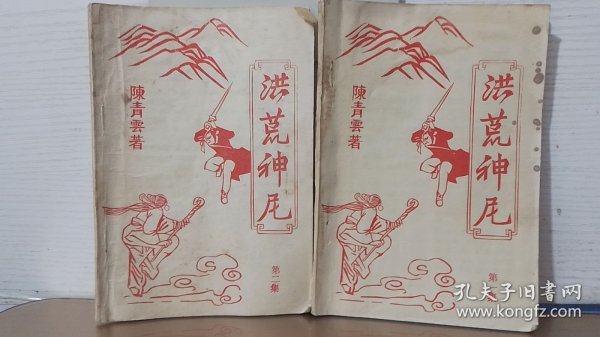 陳青雲著
洪荒神尼
第二集
陳青雲著
洪荒神尼
第
孔夫子旧书网
www.kongfz.com